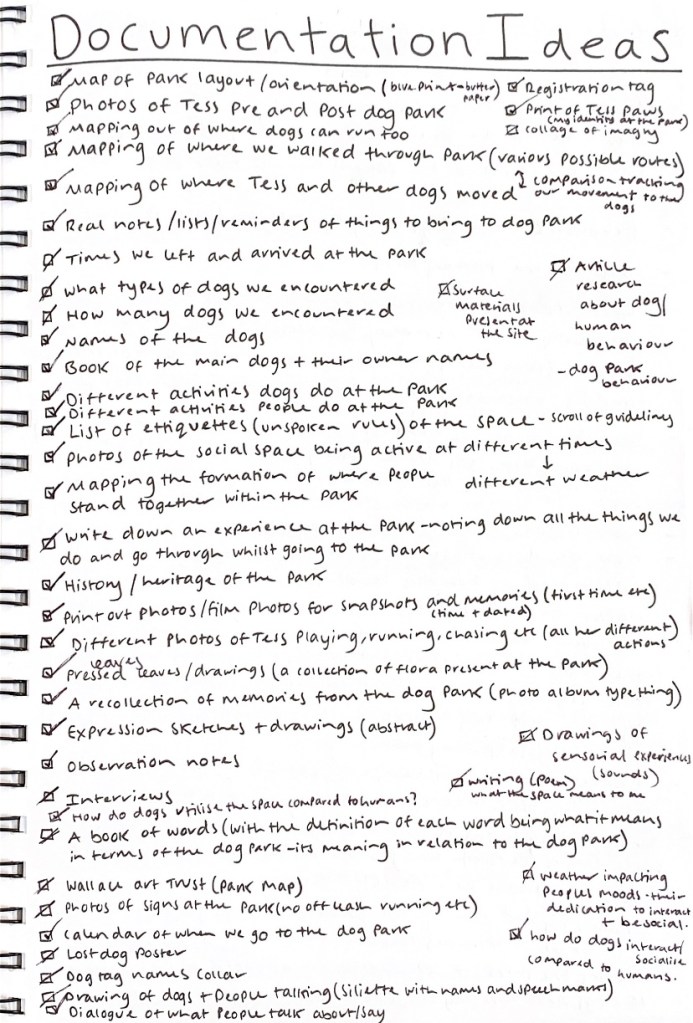 Documentation Ideas
Map of Park layout/orientation (blue print-butter paper)
Registration tag
Photos of Tess Pre and Post dog park
Print of Tess paws (my identity at the park)
Mapping out of where dogs can run too
collage of imagry
Mapping of where we walked through Park (various possible routes)
Mapping of where Tess and other dogs moved
comparison tracking our movement to the dogs
Real notes/lists/reminders of things to bring to dog park
Times we left and arrived at the park
what types of dogs we encountered
How many dogs we encountered
Names of the dogs
Surface
materials
Present at
the site
Article
research
about dog/
human
behaviour
- dog park
behaviour
Book of the main dogs + their owner names
Different activities dogs do at the park
Different activities People do at the park
List of ettiquettes (unspoken rules) of the space - scroll of guidelines
Photos of the social space being active at different times
↓
different weather
Mapping the formation of where people
stand together within the park
write down an experience at the park - noting down all the things we
do and go through whilst going to the park
History/heritage of the park
Print out photos/film photos for snapshots and memories (first time etc)
(time + dated)
Different photos of Tess playing, running, chasing etc (all her different
actions)
leaves
Pressed leaves/drawings (a collection of flora present at the park)
A recollection of memories from the dog park (photo album type thing)
Expression sketches + drawings (abstract)
Observation notes
Drawings of
sensorial experiences
(sounds)
writing (poem)
what the space means to me
Interviews
How do dogs utilise the space compared to humans?
A book of words (with the definition of each word being what it means
in terms of the dog park - its meaning in relation to the dog park)
Wallace art Trust (park map)
Photos of signs at the park (no off leash running etc)
Calendar of when we go to the dog park
Lost dog poster
Dog tag names collar
weather impacting
peoples moods - their
dedication to interact
+ be social.
how do dogs interact/
socialise
compared to humans.
Drawing of dogs + People talking (siliette with names and speech marks)
Dialogue of what people talk about/say